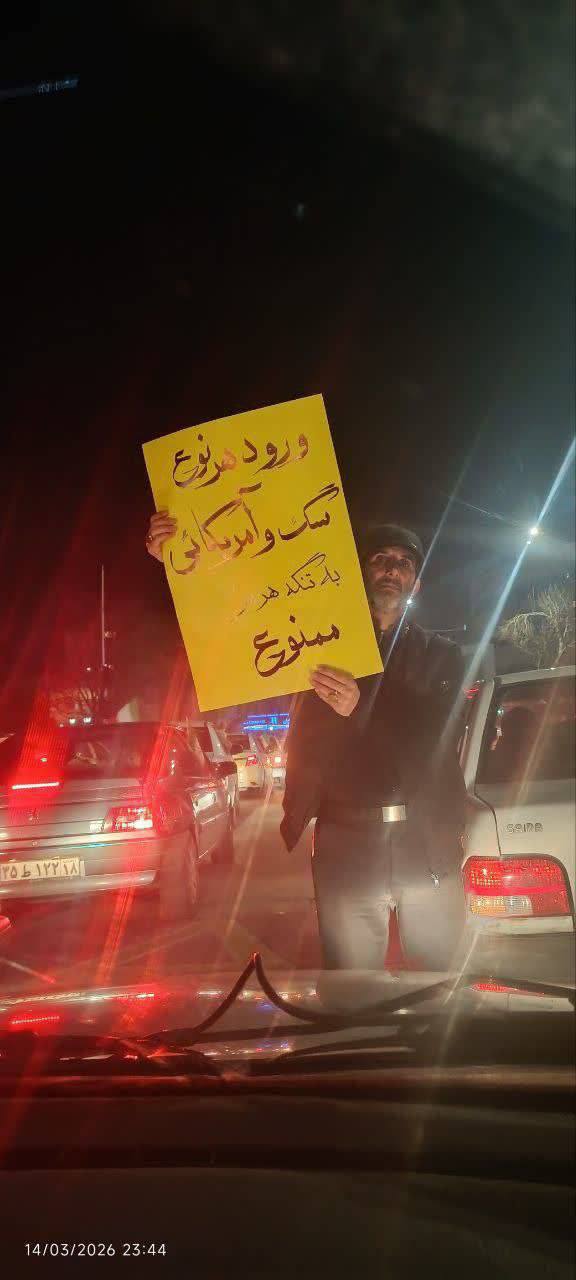 ورود هر نوع
سگ و آمریکائی
به تنگه هرمز
ممنوع
SAIPA
۳۵ ط ۱۲۲ ۱۸
14/03/2026 23:44